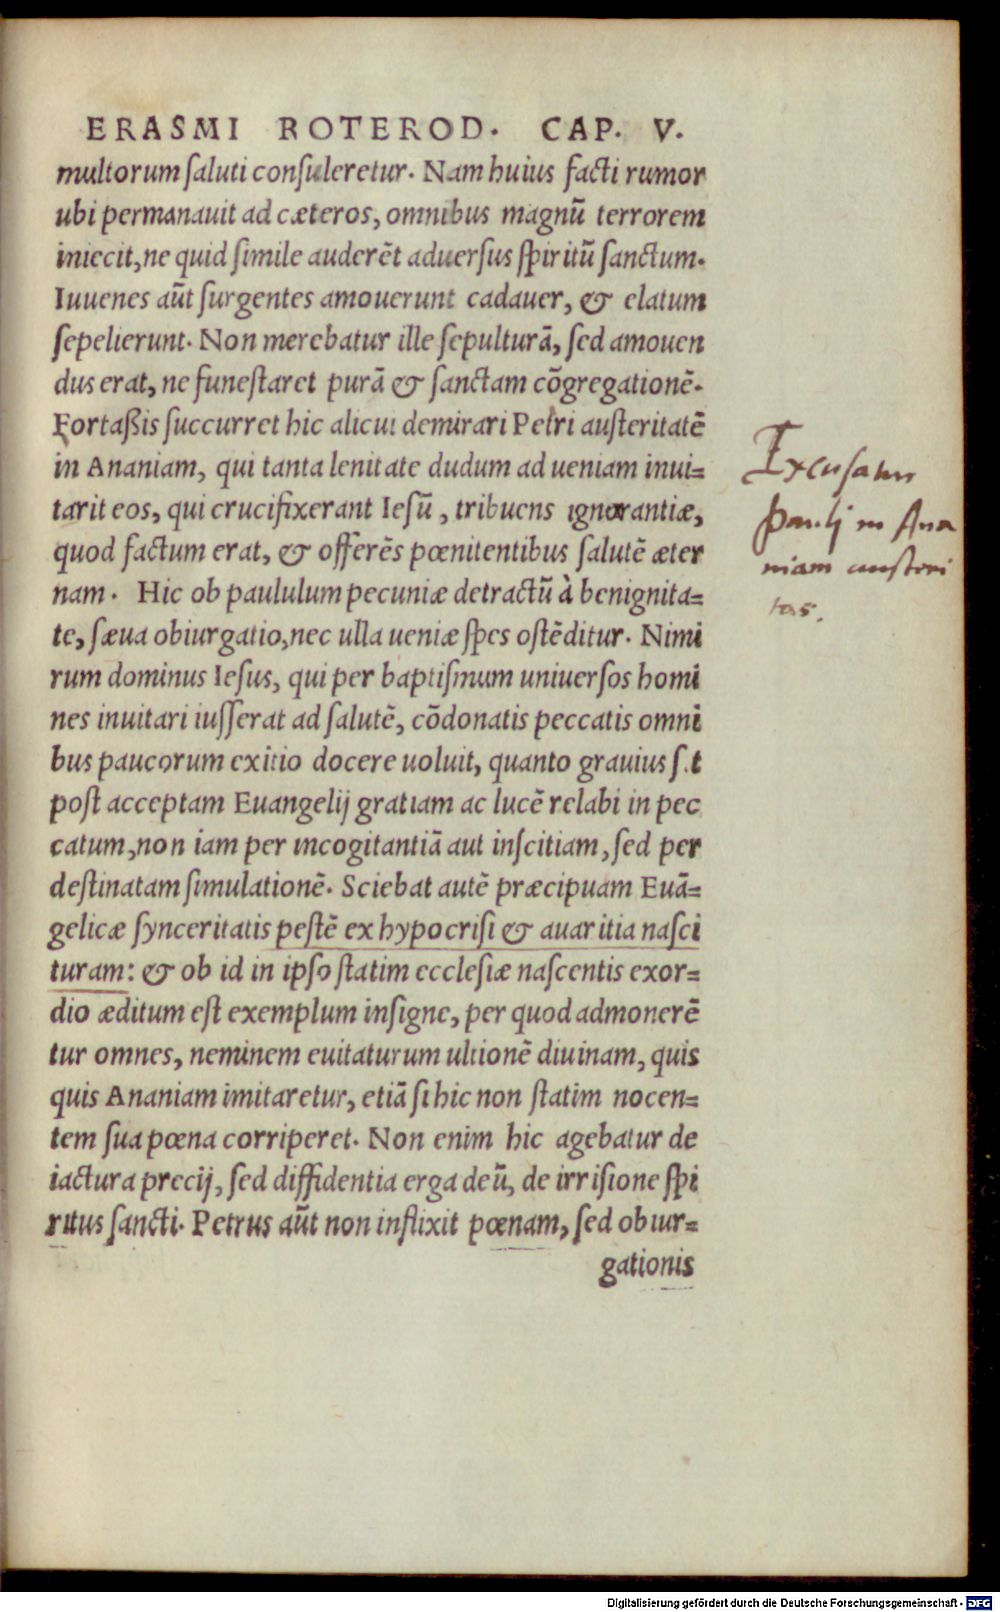 ERASMI ROTEROD. CAP. V.
multorum ſaluti conſuleretur. Nam huius facti rumor
ubi permanauit ad cæteros, omnibus magnũ terrorem
iniecit, ne quid ſimile auderẽt aduerſus ſpiritũ ſanctum.
Iuuenes aũt ſurgentes amouerunt cadauer, & elatum
ſepelierunt. Non merebatur ille ſepulturã, ſed amouen
dus erat, ne funeſtaret purã & ſanctam cõgregationẽ.
Fortaßis ſuccurret hic alicui demirari Petri auſteritatẽ
in Ananiam, qui tanta lenitate dudum ad ueniam inui=
tarit eos, qui crucifixerant Ieſũ, tribuens ignorantiæ,
quod factum erat, & offerẽs pœnitentibus ſalutẽ æter
nam. Hic ob paululum pecuniæ detractũ à benignita=
te, ſæua obiurgatio, nec ulla ueniæ ſpes oſtẽditur. Nimi
rum dominus Ieſus, qui per baptiſmum uniuerſos homi
nes inuitari iuſſerat ad ſalutẽ, cõdonatis peccatis omni
bus paucorum exitio docere uoluit, quanto grauius ſ.t
poſt acceptam Euangelij gratiam ac lucẽ relabi in pec
catum, non iam per incogitantiã aut inſcitiam, ſed per
deſtinatam ſimulationẽ. Sciebat autẽ præcipuam Euã=
gelicæ ſynceritatis peſtẽ ex hypocriſi & auaritia naſci
turam: & ob id in ipſo ſtatim eccleſiæ naſcentis exor=
dio æditum eſt exemplum inſigne, per quod admonerẽ
tur omnes, neminem euitaturum ultionẽ diuinam, quis
quis Ananiam imitaretur, etiã ſi hic non ſtatim nocen=
tem ſua pœna corriperet. Non enim hic agebatur de
iactura precij, ſed diffidentia erga deũ, de irriſione ſpi
ritus ſancti. Petrus aũt non inflixit pœnam, ſed obiur=
gationis
Excusatur
pauli in Ana
niam austeri
tas.
Digitalisierung gefördert durch die Deutsche Forschungsgemeinschaft - DFG